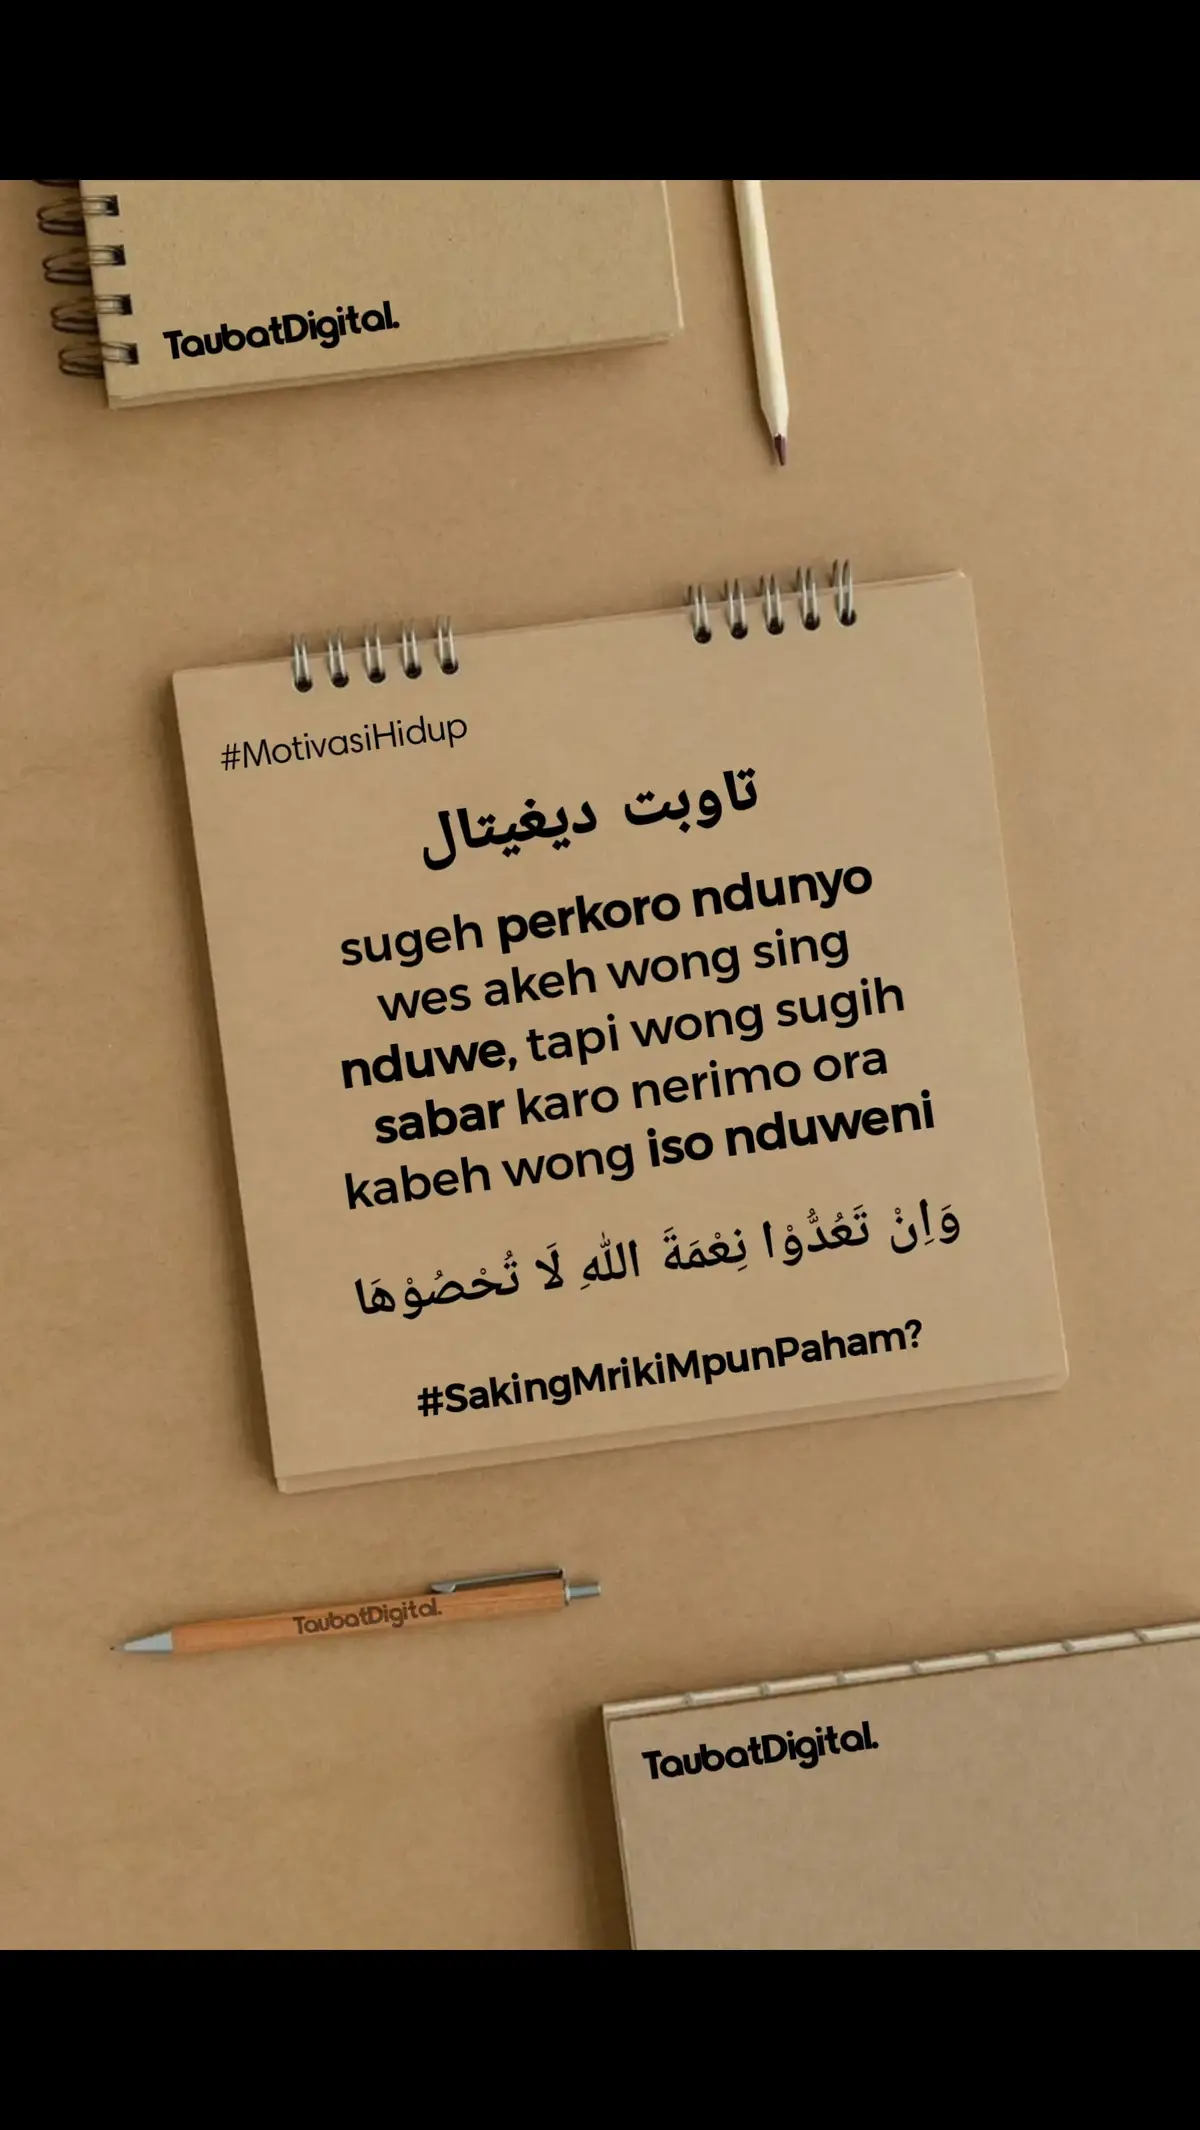 TaubatDigital.
#MotivasiHidup
تاوبت ديغيتال
sugeh perkoro ndunyo
wes akeh wong sing
nduwe, tapi wong sugih
sabar karo nerimo ora
kabeh wong iso nduweni
وَاِنْ تَعُدُّوْا نِعْمَةَ اللّٰهِ لَا تُحْصُوْهَا
#SakingMrikiMpunPaham?
TaubatDigital.
TaubatDigital.